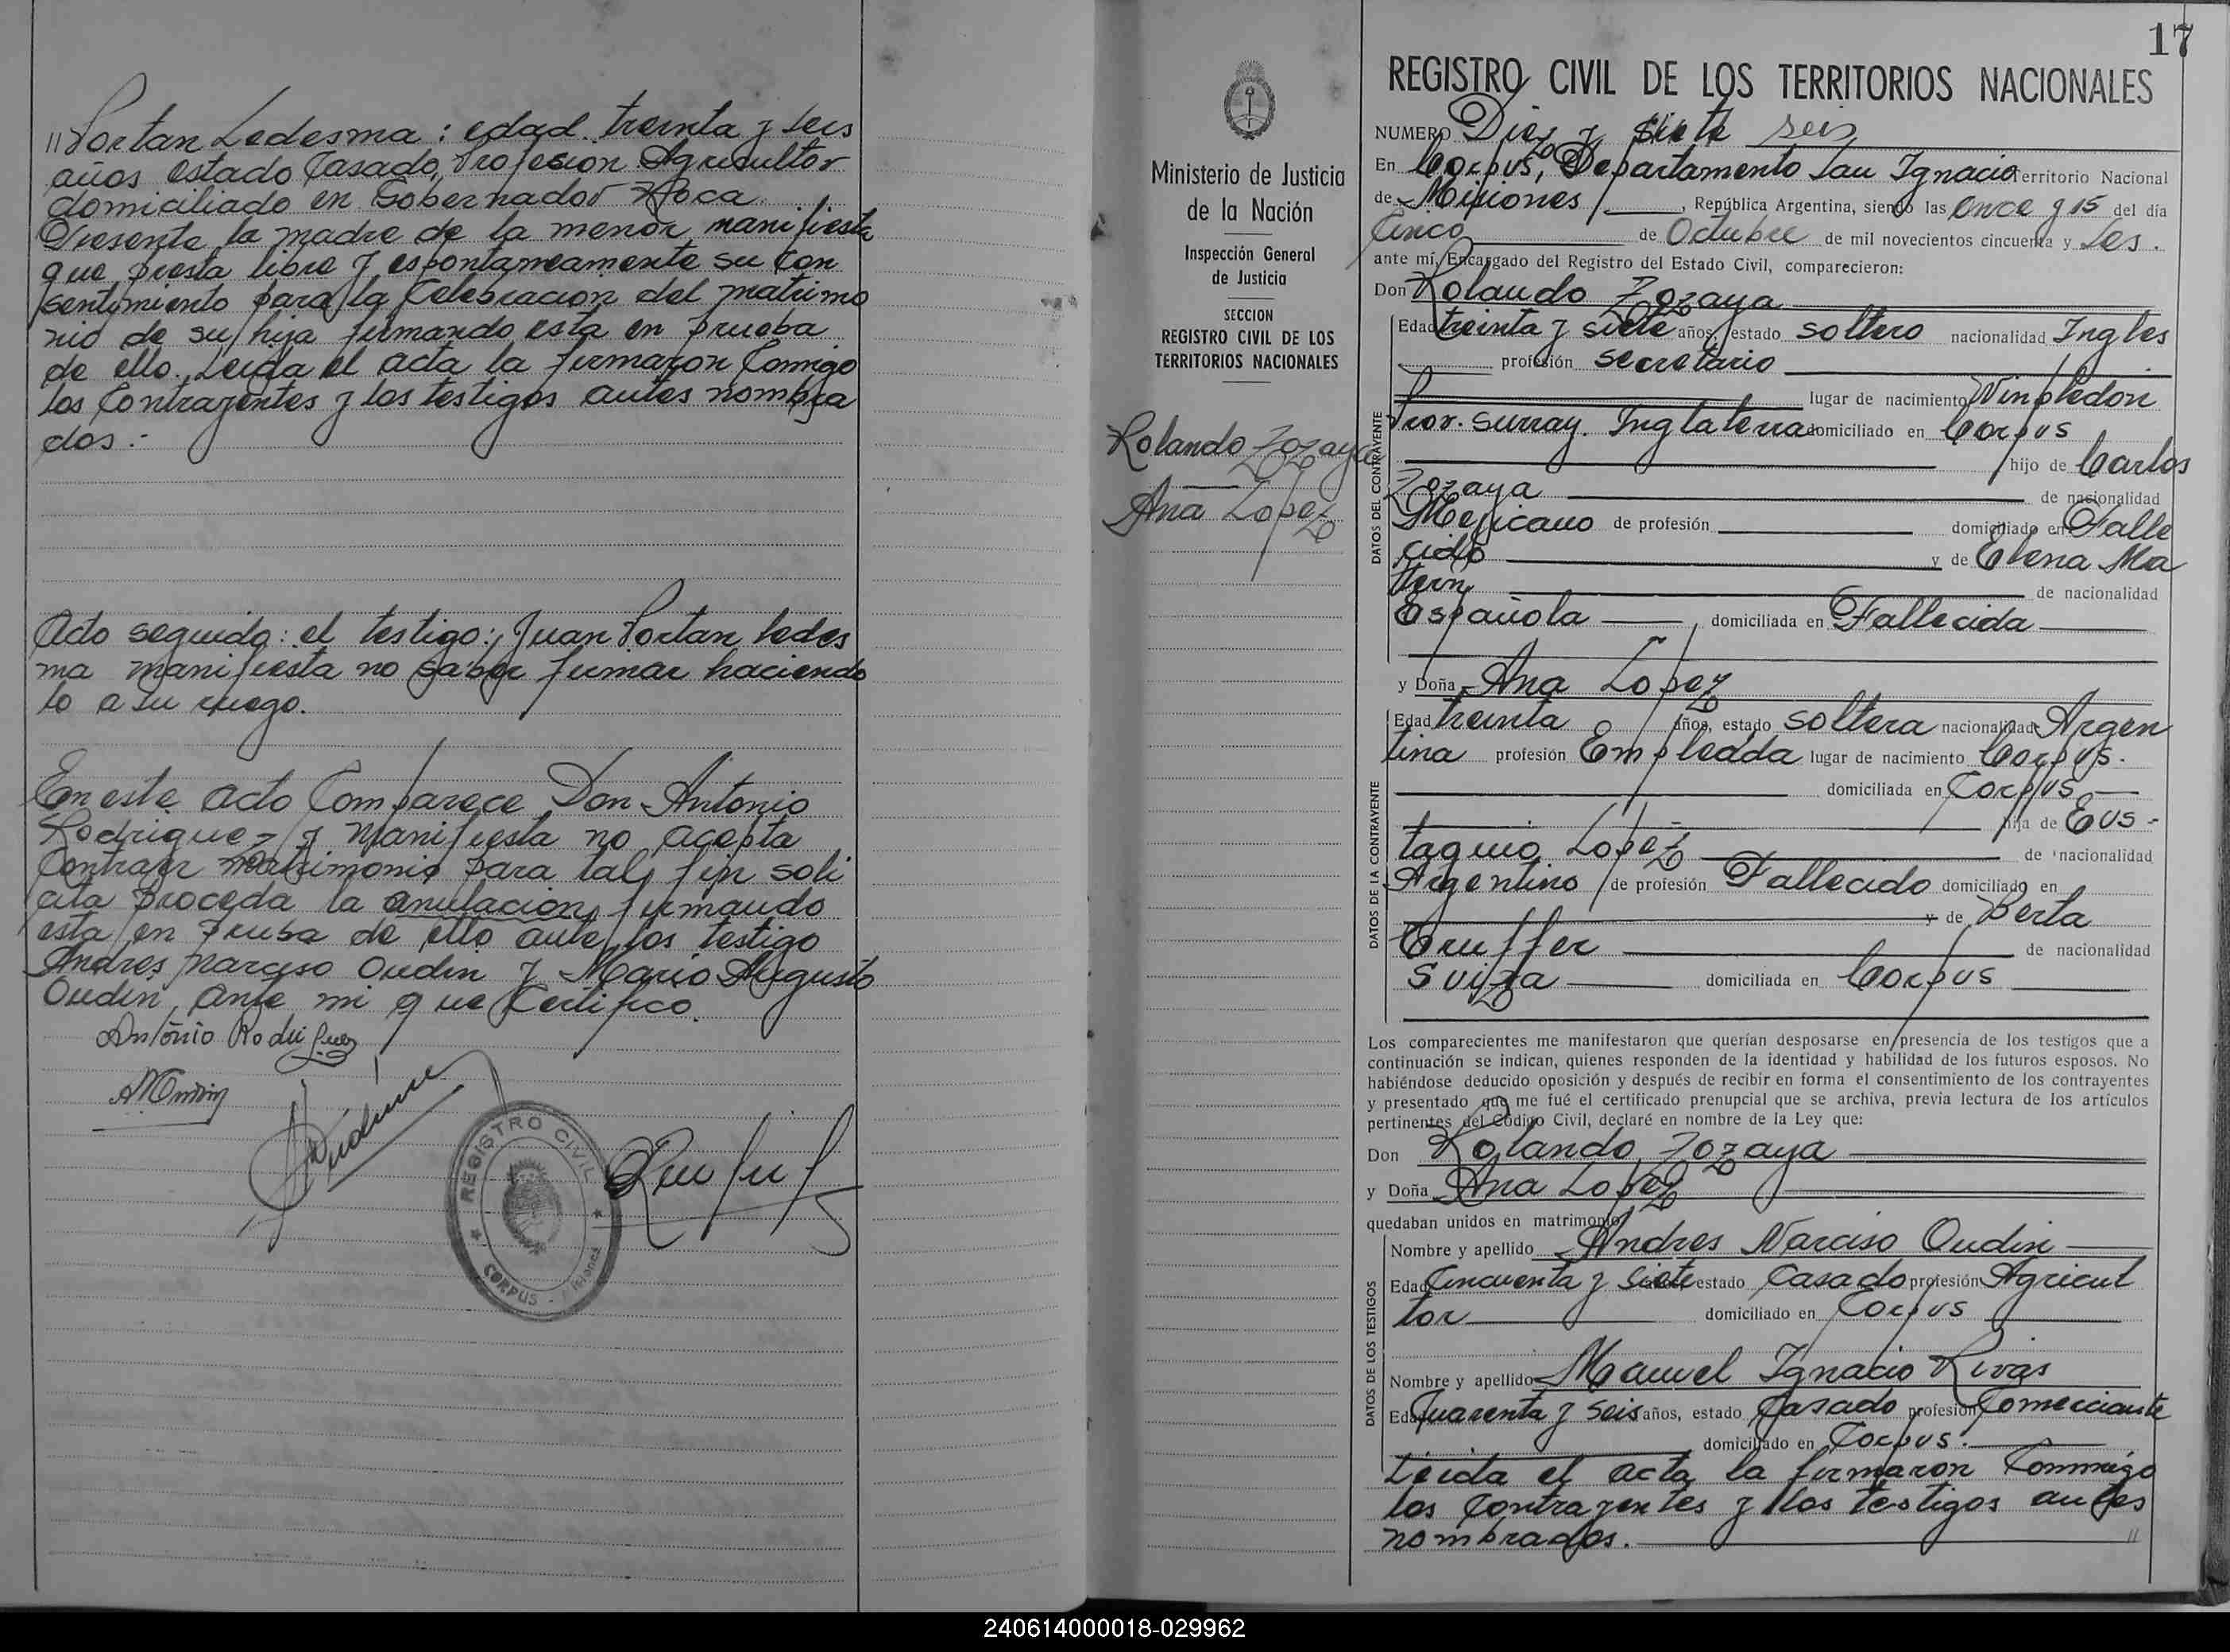 "Portan Ledesma: edad treinta y seis
años estado Casado, Profesion Agricultor
domiciliado en Gobernador Roca.
Presente la madre de la menor manifiesta
que presta libre y espontameamente su Con
sentimiento para la Celebracion del matrimo
nio de su hija firmando esta en prueba
de ello. Leida el acta la firmaron Conmigo
los Contrayentes y los testigos antes nombra
dos.-
Acto seguido: el testigo: Juan Portan Ledes
ma manifiesta no saber firmar haciendo
lo a su ruego.
En este acto Comparece Don Antonio
Rodriguez y manifiesta no acepta
Contraer matrimonio para tal fin soli
cita proceda la anulacion firmando
esta en prueba de ello ante los testigo
Andres Narciso Oudin y Mario Augusto
Oudin, ante mi que Certifico.
Antonio Rodriguez
REGISTRO CIVIL
CORPUS - Misiones
Ministerio de Justicia
de la Nación
Inspección General
de Justicia
SECCION
REGISTRO CIVIL DE LOS
TERRITORIOS NACIONALES
Rolando Zozaya
Ana Lopez
17
REGISTRO CIVIL DE LOS TERRITORIOS NACIONALES
NUMERO Diez y siete seis
En Corpus, Departamento San Ignacio Territorio Nacional
de Misiones, República Argentina, siendo las once y 15 del día
Cinco de Octubre de mil novecientos cincuenta y Seis.
ante mí, Encargado del Registro del Estado Civil, comparecieron:
Don Rolando Zozaya
Edad treinta y siete años, estado soltero nacionalidad Ingles
profesión secretario
lugar de nacimiento Winpledon
Prov. Surray. Inglaterra domiciliado en Corpus
hijo de Carlos
Zozaya de nacionalidad
Mejicano de profesión domiciliado en Falle
cido y de Elena Ma
tern de nacionalidad
Española domiciliada en Fallecida
y Doña Ana Lopez
Edad treinta años, estado soltera nacionalidad Argen
tina profesión Empleada lugar de nacimiento Corpus.
domiciliada en Corpus
hija de Eus-
taquio Lopez de nacionalidad
Argentino de profesión Fallecido domiciliado en
y de Berta
Gruffer de nacionalidad
Suiza domiciliada en Corpus
Los comparecientes me manifestaron que querían desposarse en presencia de los testigos que a
continuación se indican, quienes responden de la identidad y habilidad de los futuros esposos. No
habiéndose deducido oposición y después de recibir en forma el consentimiento de los contrayentes
y presentado que me fué el certificado prenupcial que se archiva, previa lectura de los artículos
pertinentes del Código Civil, declaré en nombre de la Ley que:
Don Rolando Zozaya
y Doña Ana Lopez
quedaban unidos en matrimonio
Nombre y apellido Andres Narciso Oudin
Edad Cincuenta y Siete estado Casado profesión Agricul
tor domiciliado en Corpus
Nombre y apellido Manuel Ignacio Rivas
Edad Cuarenta y Seis años, estado Casado profesión Comerciante
domiciliado en Corpus.
Leida el acta la firmaron Conmigo
los Contrayentes y los testigos antes
nombrados. "
DATOS DEL CONTRAYENTE
DATOS DE LA CONTRAYENTE
DATOS DE LOS TESTIGOS
240614000018-029962